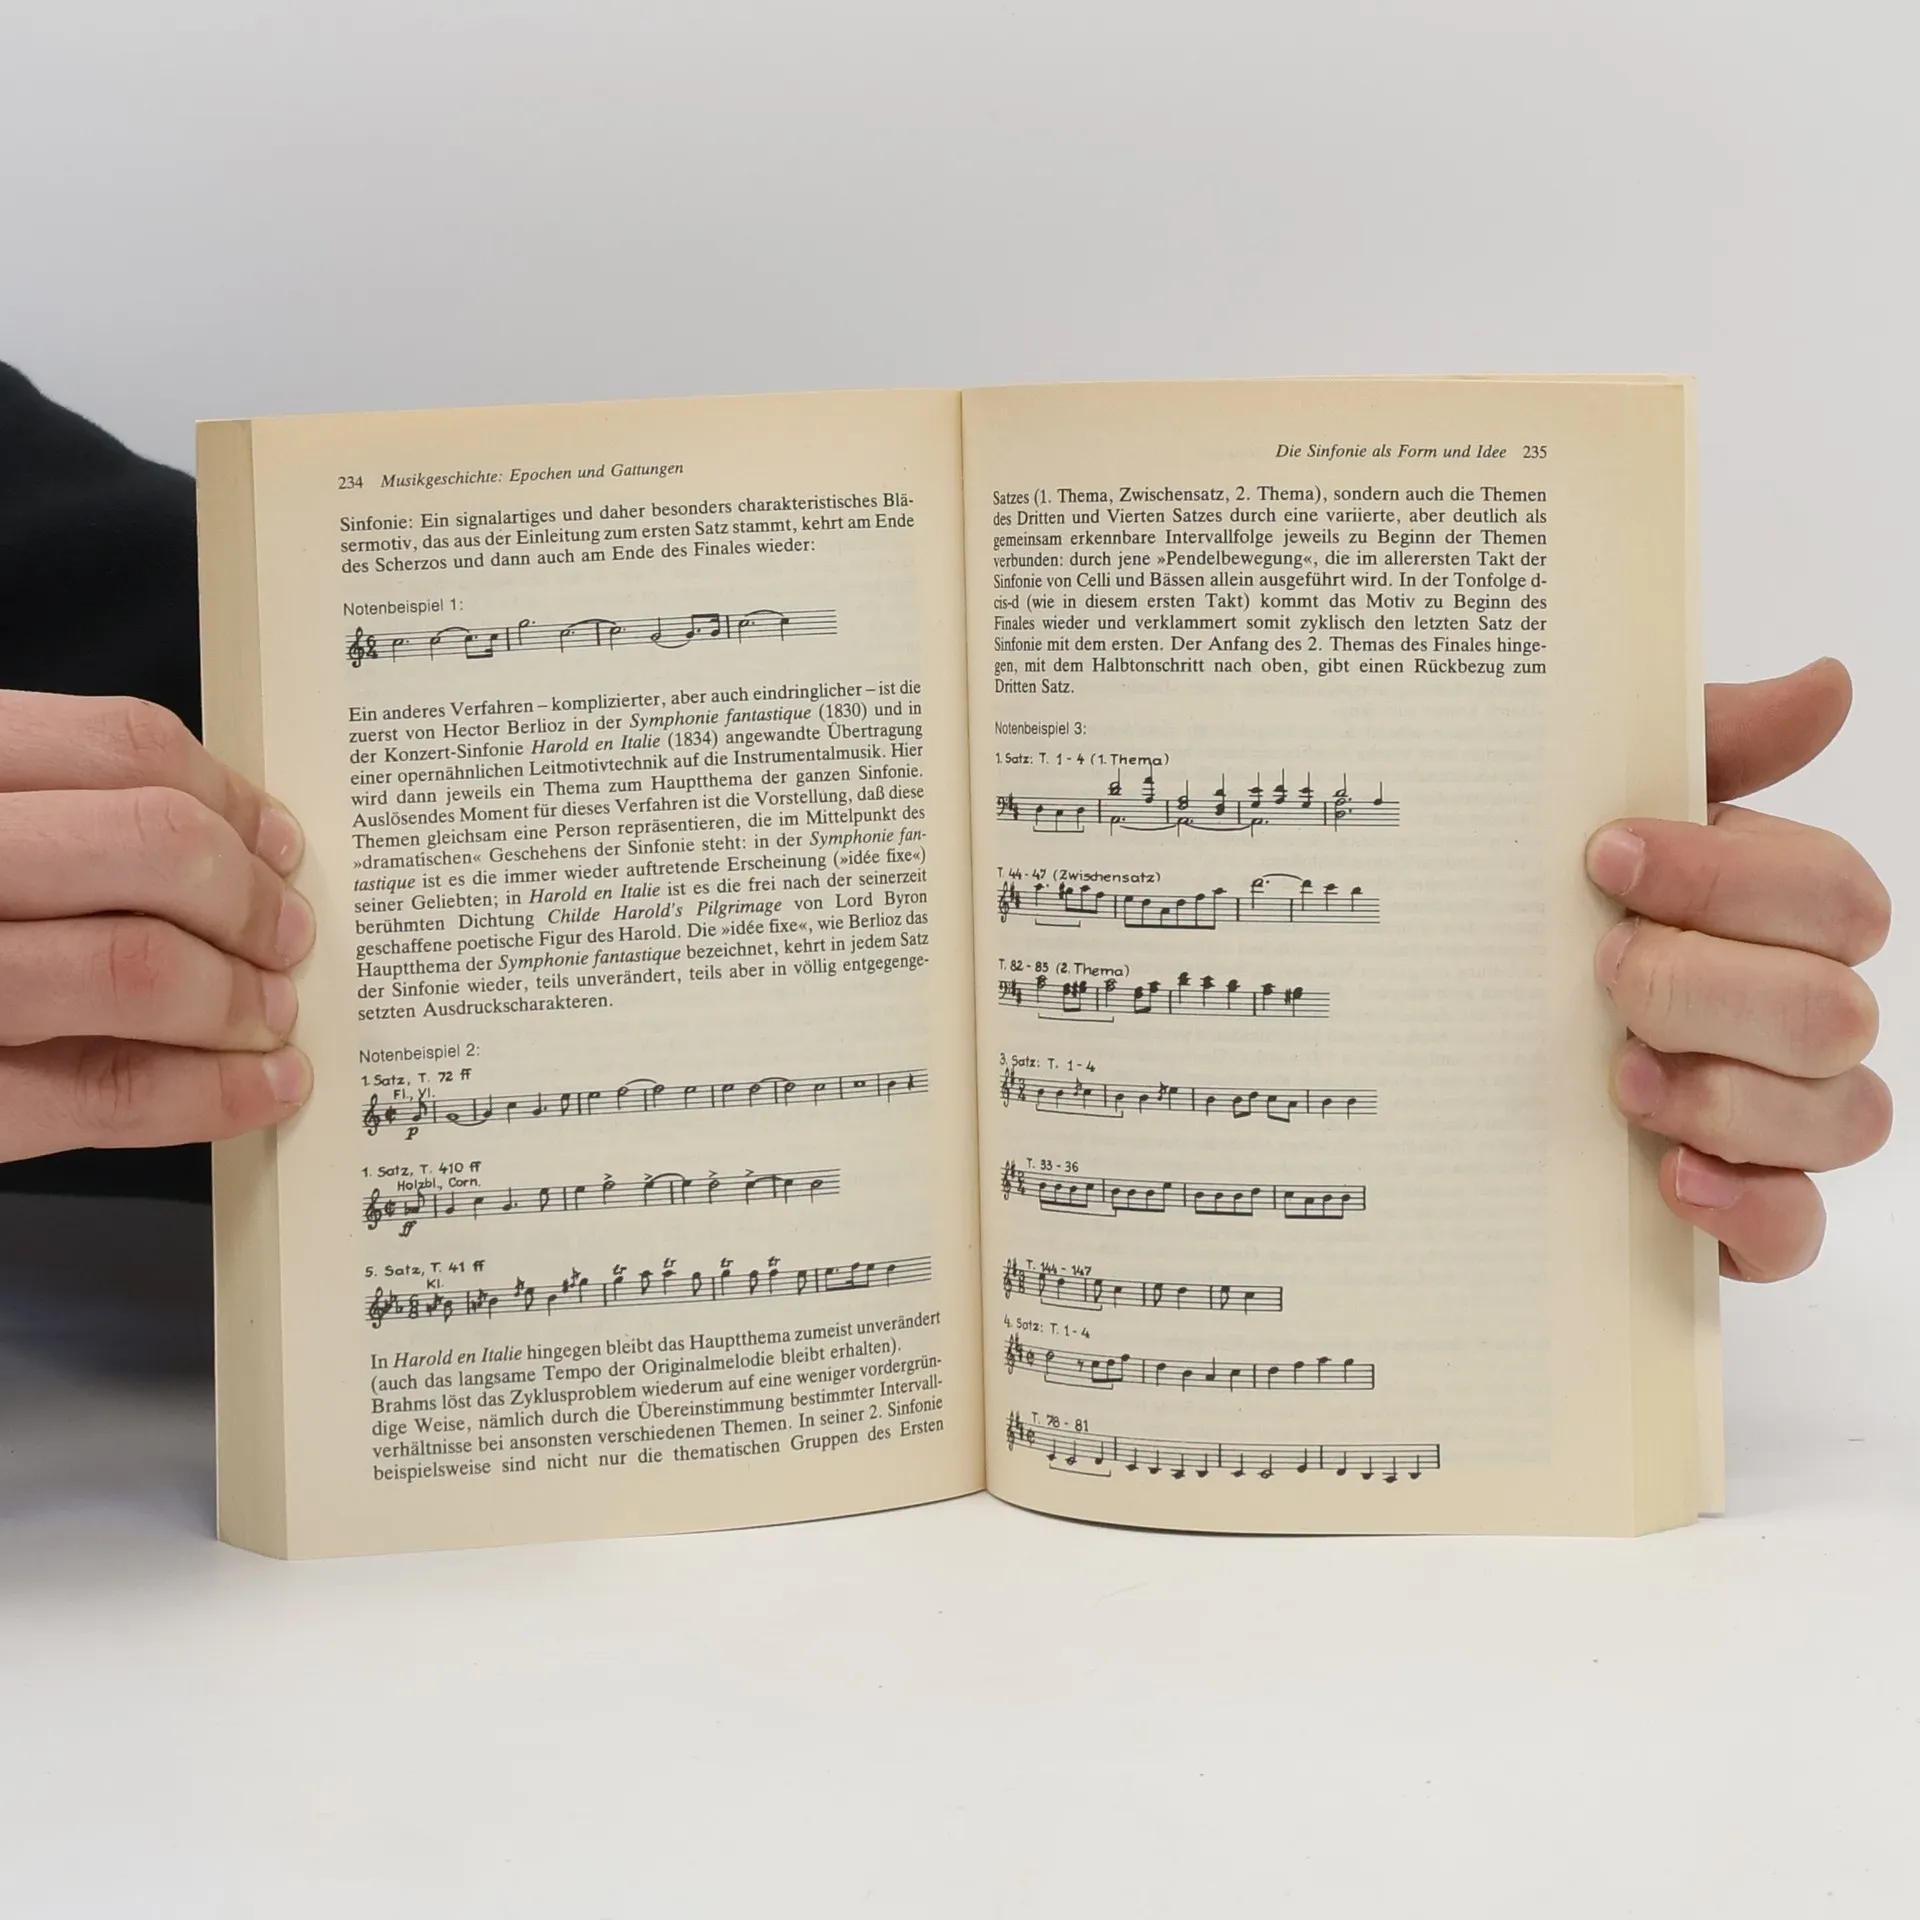 234 Musikgeschichte: Epochen und Gattungen
Sinfonie: Ein signalartiges und daher besonders charakteristisches Blä-
sermotiv, das aus der Einleitung zum ersten Satz stammt, kehrt am Ende
des Scherzos und dann auch am Ende des Finales wieder:
Notenbeispiel 1:
Ein anderes Verfahren – komplizierter, aber auch eindringlicher – ist die
zuerst von Hector Berlioz in der Symphonie fantastique (1830) und in
der Konzert-Sinfonie Harold en Italie (1834) angewandte Übertragung
einer opernähnlichen Leitmotivtechnik auf die Instrumentalmusik. Hier
wird dann jeweils ein Thema zum Hauptthema der ganzen Sinfonie.
Auslösendes Moment für dieses Verfahren ist die Vorstellung, daß diese
Themen gleichsam eine Person repräsentieren, die im Mittelpunkt des
»dramatischen« Geschehens der Sinfonie steht: in der Symphonie fan-
tastique ist es die immer wieder auftretende Erscheinung (»idée fixe«)
seiner Geliebten; in Harold en Italie ist es die frei nach der seinerzeit
berühmten Dichtung Childe Harold's Pilgrimage von Lord Byron
geschaffene poetische Figur des Harold. Die »idée fixe«, wie Berlioz das
Hauptthema der Symphonie fantastique bezeichnet, kehrt in jedem Satz
der Sinfonie wieder, teils unverändert, teils aber in völlig entgegenge-
setzten Ausdruckscharakteren.
Notenbeispiel 2:
1. Satz, T. 72 ff
Fl., Vl.
p
1. Satz, T. 410 ff
Holzbl., Corn.
ff
5. Satz, T. 41 ff
Kl.
tr tr tr tr
In Harold en Italie hingegen bleibt das Hauptthema zumeist unverändert
(auch das langsame Tempo der Originalmelodie bleibt erhalten).
Brahms löst das Zyklusproblem wiederum auf eine weniger vordergrün-
dige Weise, nämlich durch die Übereinstimmung bestimmter Intervall-
verhältnisse bei ansonsten verschiedenen Themen. In seiner 2. Sinfonie
beispielsweise sind nicht nur die thematischen Gruppen des Ersten
Die Sinfonie als Form und Idee 235
Satzes (1. Thema, Zwischensatz, 2. Thema), sondern auch die Themen
des Dritten und Vierten Satzes durch eine variierte, aber deutlich als
gemeinsam erkennbare Intervallfolge jeweils zu Beginn der Themen
verbunden: durch jene »Pendelbewegung«, die im allerersten Takt der
Sinfonie von Celli und Bässen allein ausgeführt wird. In der Tonfolge d-
cis-d (wie in diesem ersten Takt) kommt das Motiv zu Beginn des
Finales wieder und verklammert somit zyklisch den letzten Satz der
Sinfonie mit dem ersten. Der Anfang des 2. Themas des Finales hinge-
gen, mit dem Halbtonschritt nach oben, gibt einen Rückbezug zum
Dritten Satz.
Notenbeispiel 3:
1. Satz: T. 1 - 4 (1. Thema)
T. 44 - 47 (Zwischensatz)
T. 82 - 85 (2. Thema)
3. Satz: T. 1 - 4
T. 33 - 36
T. 144 - 147
4. Satz: T. 1 - 4
T. 78 - 81